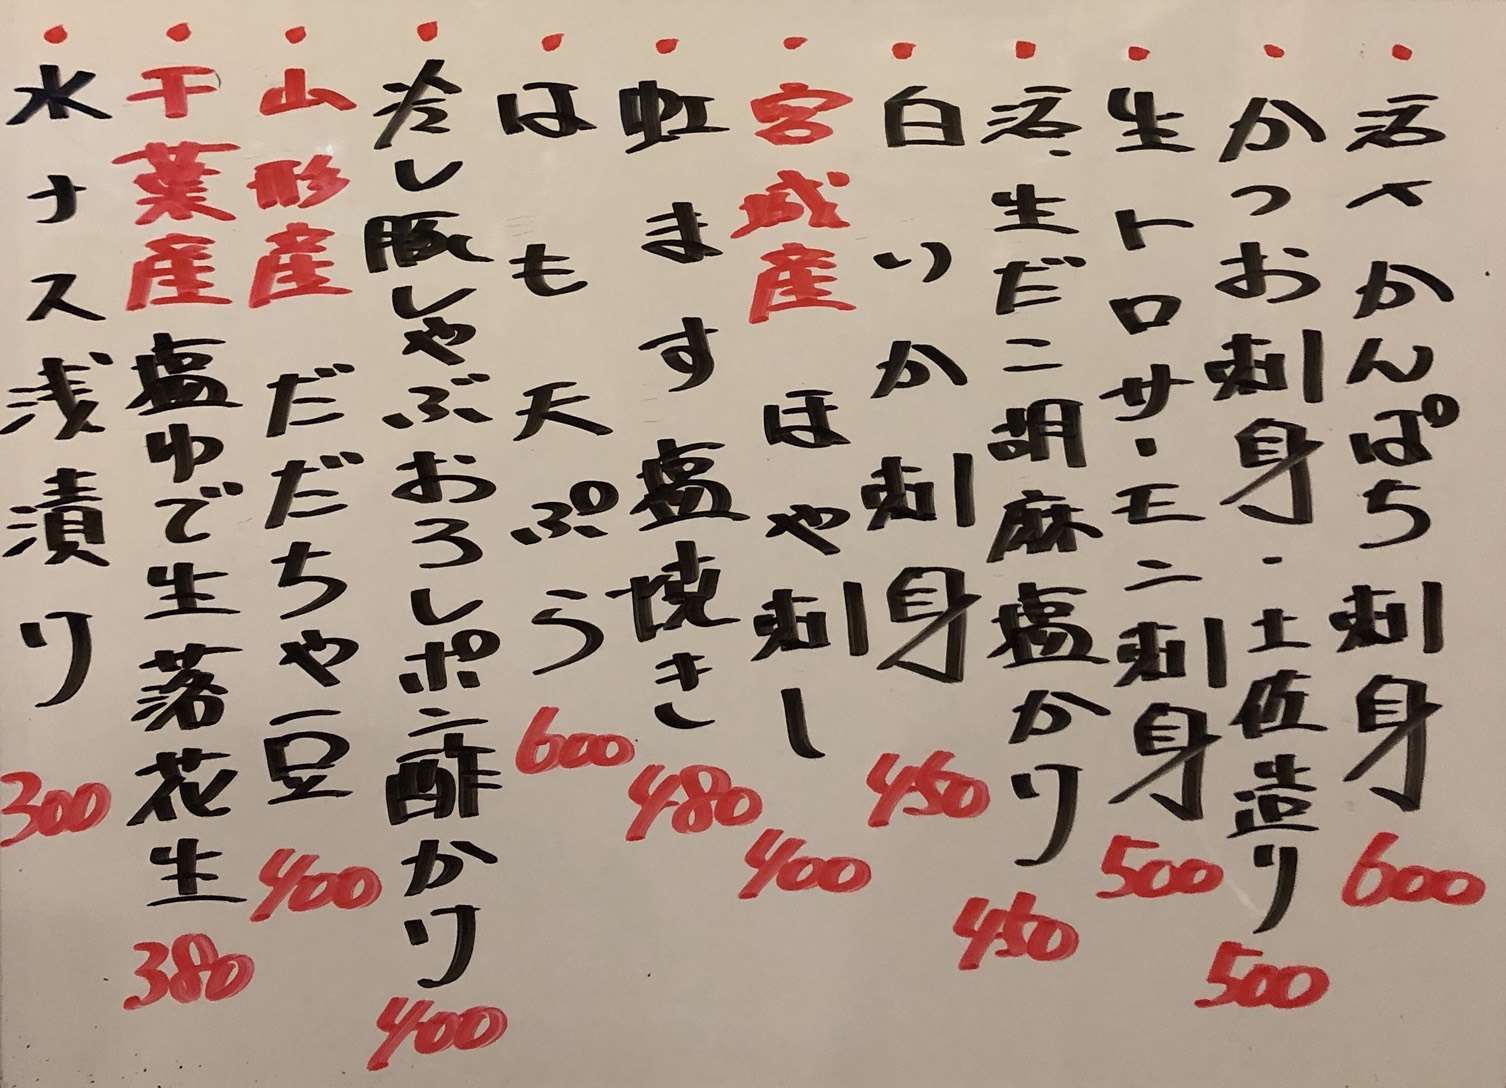 ・活〆かんぱち刺身 600
・かつお刺身・土佐造り 500
・生トロサーモン刺身 500
・活・生だこ胡麻塩かり 450
・白いか刺身 450
・宮城産 ほや刺し 400
・虹ます塩焼き 480
・はも天ぷら 600
・冷し豚しゃぶおろしポン酢かけ 400
・山形産 だだちゃ豆 400
・千葉産 塩ゆで生落花生 380
・水ナス浅漬り 300